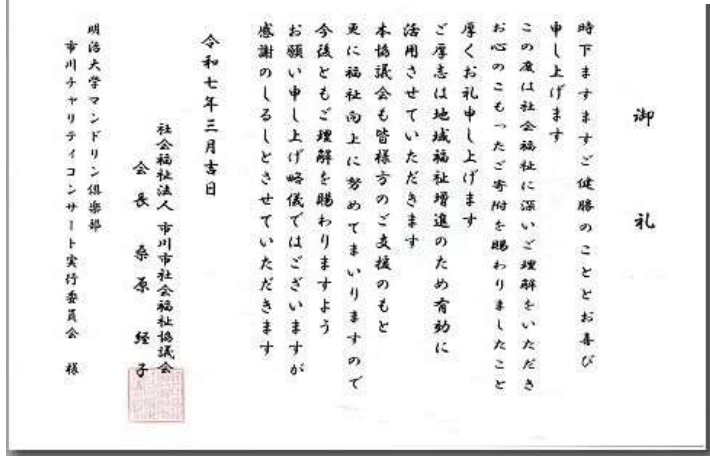 御礼
時下ますますご健勝のこととお喜び
申し上げます
この度は社会福祉に深いご理解をいただき
お心のこもったご寄附を賜わりましたこと
厚くお礼申し上げます
ご厚志は地域福祉増進のため有効に
活用させていただきます
本協議会も皆様方のご支援のもと
更に福祉向上に努めてまいりますので
今後ともご理解を賜わりますよう
お願い申し上げ略儀ではございますが
感謝のしるしとさせていただきます
令和七年三月吉日
社会福祉法人 市川市社会福祉協議会
会長 桑原 経子
明治大学マンドリン倶楽部
市川チャリティコンサート実行委員会 様